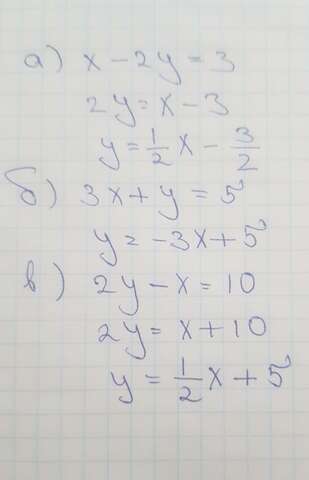 а) x - 2y = 3
2y = x - 3
y = 1/2 x - 3/2
б) 3x + y = 5
y = -3x + 5
в) 2y - x = 10
2y = x + 10
y = 1/2 x + 5